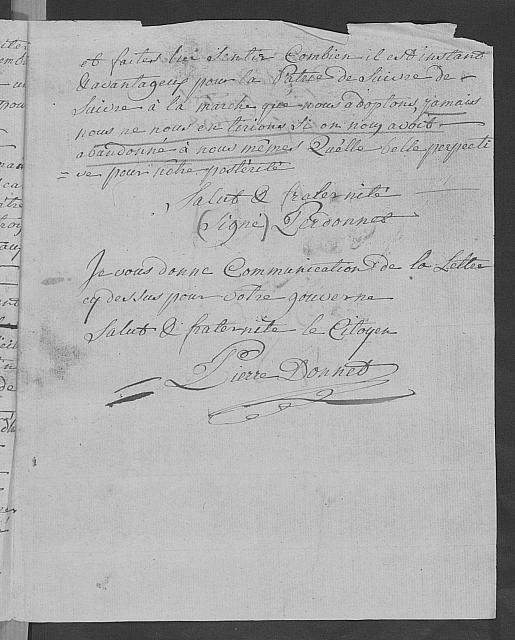 et faites lui sentir Combien il est instant
& avantageux pour la Patrie de Suivre de
Suivre à la marche que nous adoptons, jamais
nous ne nous en tirions Si on nous avoit
abandonné à nous mêmes Quelle belle perpecti
= ve pour notre postérité
Salut & fraternité
(Signé) Perdonnet
Je vous donne Communication de la Lettre
cy dessus pour votre gouverne
Salut & fraternité le Citoyen
Pierre Donnet